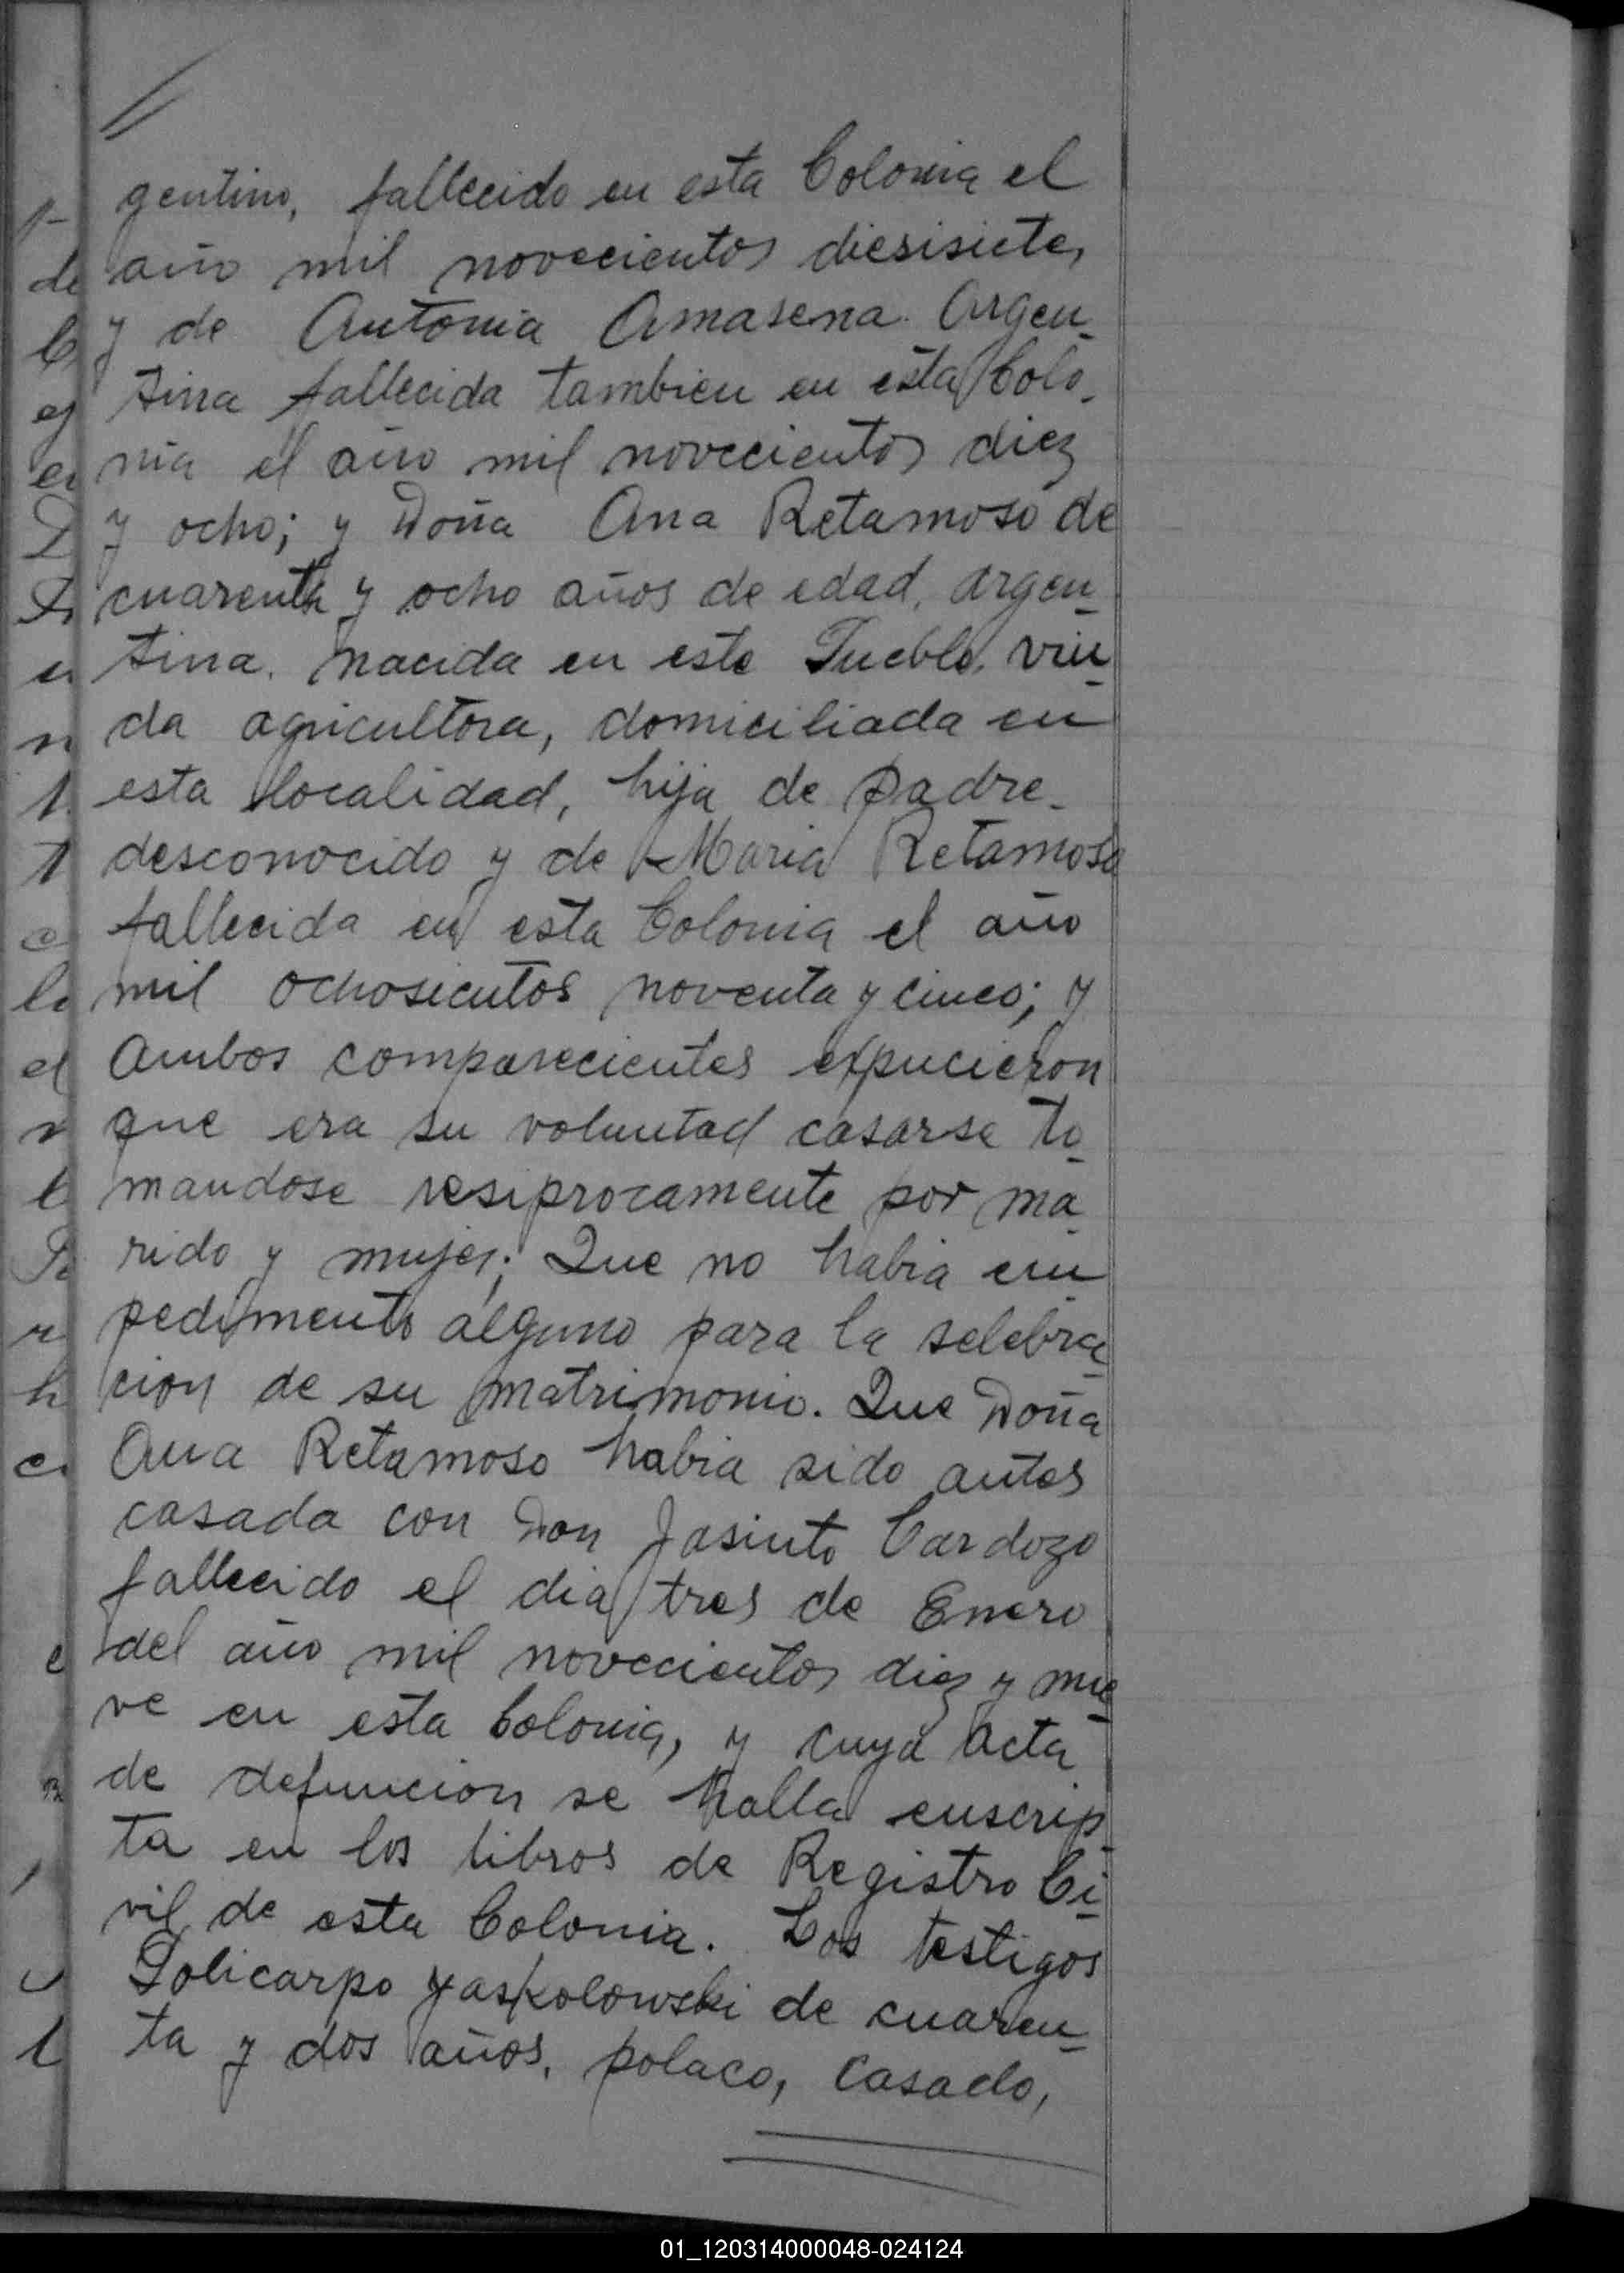 gentino, fallecido en esta Colonia el
año mil novecientos diesisiete,
y de Antonia Amasena. Argen-
tina fallecida tambien en esta Colo-
nia el año mil novecientos diez
y ocho; y Doña Ana Retamoso de
cuarenta y ocho años de edad, argen-
tina. nacida en este Pueblo, viu-
da agricultora, domiciliada en
esta localidad, hija de padre
desconocido y de Maria Retamoso
fallecida en esta Colonia el año
mil ochosientos noventa y cinco; y
Ambos comparecientes expucieron
que era su voluntad casarse to-
mandose resiprocamente por ma-
rido y mujer; Que no habia em-
pedimento alguno para la selebra-
cion de su matrimonio. Que Doña
Ana Retamoso habia sido antes
casada con Don Jasinto Cardozo
fallecido el dia tres de Enero
del año mil novecientos diez y nue-
ve en esta Colonia, y cuya acta
de defuncion se halla enscrip-
ta en los libros de Registro Ci-
vil de esta Colonia. Los testigos
Policarpo Yaskolowski de cuaren-
ta y dos años, polaco, casado,
01_120314000048-024124